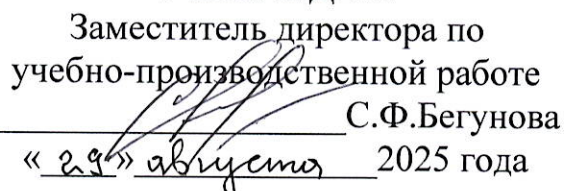 Заместитель директора по
учебно-производственной работе
С.Ф.Бегунова
« 29 » августа 2025 года